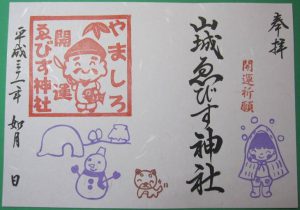 奉拝
開運祈願
山城ゑびす神社
やましろ
開運
ゑびす神社
平成三十一年 如月 日